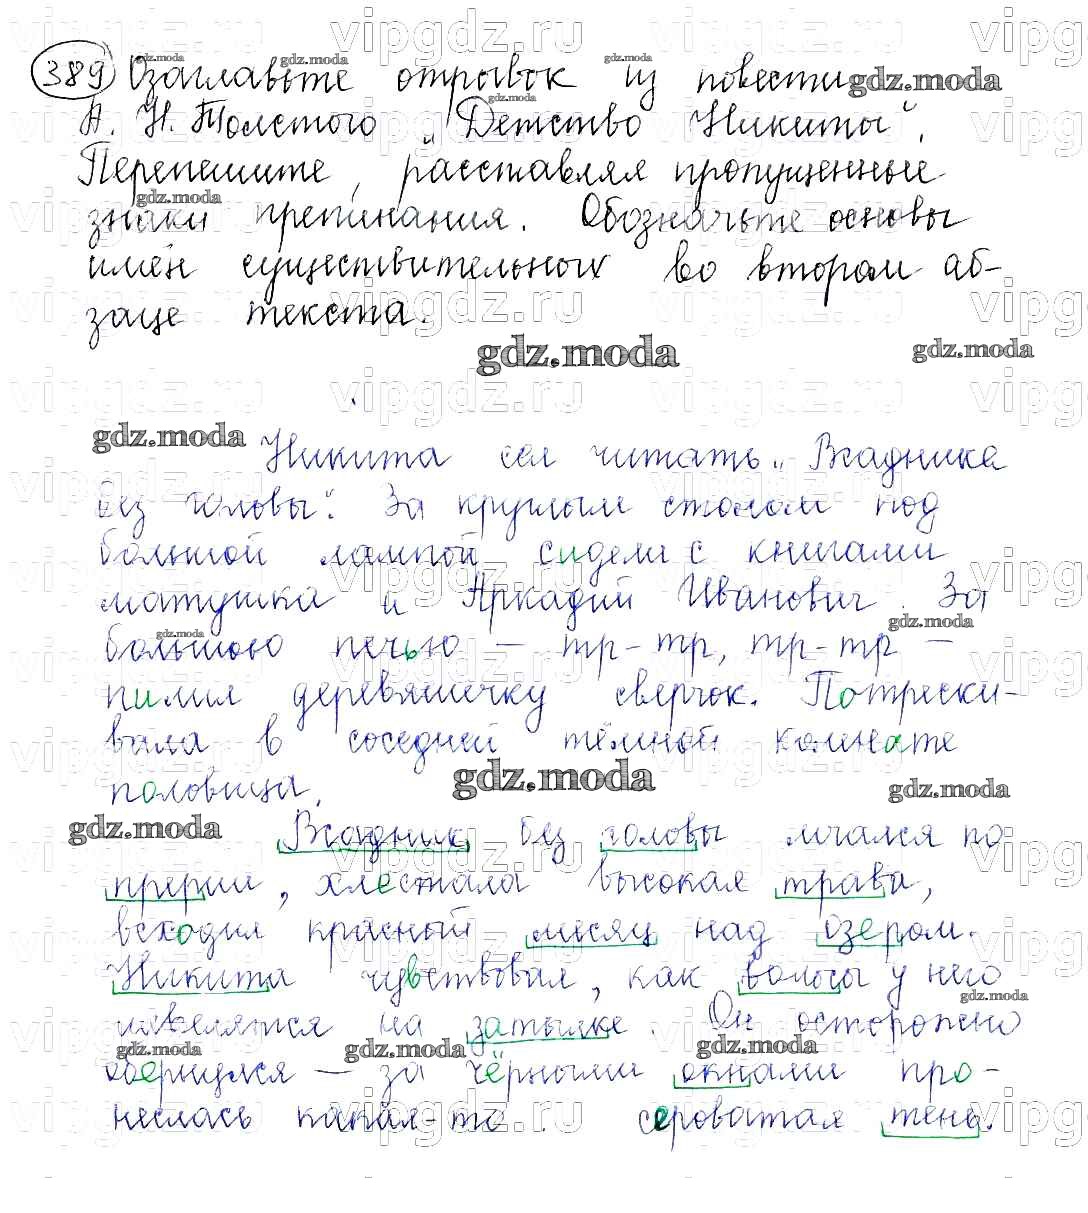 389 Озаглавьте отрывок из повести
А. Н. Толстого „Детство Никиты".
Перепишите, расставляя пропущенные
знаки препинания. Обозначьте основы
имён существительных во втором аб-
заце текста.
Никита сел читать „Всадника
без головы". За круглым столом под
большой лампой сидели с книгами
матушка и Аркадий Иванович. За
большою печью – тр-тр, тр-тр –
пилил деревяшечку сверчок. Потрески-
вала в соседней тёмной комнате
половица.
Всадник без головы мчался по
прерии, хлестала высокая трава,
всходил красный месяц над озером.
Никита чувствовал, как волосы у него
шевелятся на затылке. Он осторожно
обернулся – за чёрными окнами про-
неслась какая-то сероватая тень.